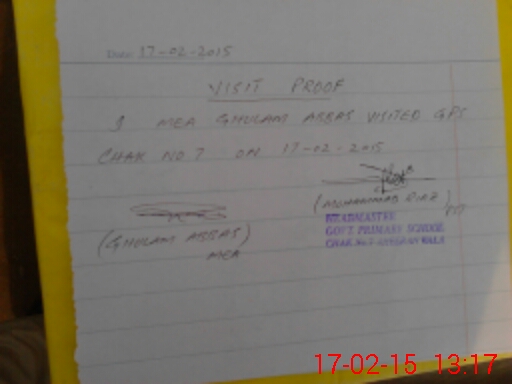 Date: 17-02-2015
VISIT PROOF
I MEA GHULAM ABBAS VISITED GPS
CHAK NO 7 ON 17-02-2015
(MUHAMMAD RIAZ)
PST
HEADMASTER
GOVT. PRIMARY SCHOOL
CHAK NO.7
(GHULAM ABBAS)
MEA
17-02-15 13:17